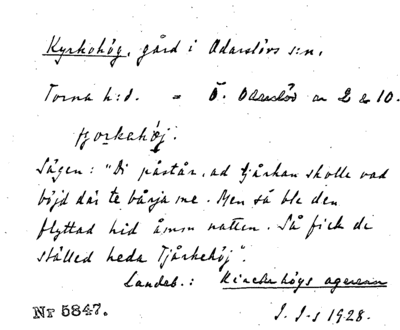 Kyrkohög, gård i Odarslövs s:n,
Torna h:d. = Ö. Odarslöv nr 2 & 10.
Sägen: "Di påstår, ad tjårkan skolle vad
böjd där te bårja me. Men så ble den
flyttad hid åmm natten. Så fick de
stålled heda Tjårkehöj".
Landsb.:
Nr 5847.
J. I-s 1928.